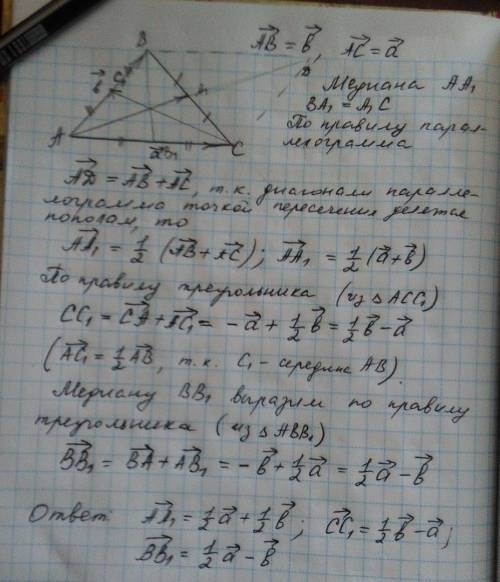 B
AB⃗ = b⃗, AC⃗ = a⃗
D
b⃗
C₁
Медиана AA₁
BA₁ = A₁C
A₁
По правилу парал-
лелограмма
A
a⃗
B₁
C
AD⃗ = AB⃗ + AC⃗, т.к. диагонали паралле-
лограмма точкой пересечения делятся
пополам, то
AA₁⃗ = 1/2 (AB⃗ + AC⃗); AA₁⃗ = 1/2 (a⃗ + b⃗)
По правилу треугольника (из △ACC₁)
CC₁ = CA⃗ + AC₁⃗ = -a⃗ + 1/2 b⃗ = 1/2 b⃗ - a⃗
(AC₁⃗ = 1/2 AB⃗, т.к. C₁ - середина AB).
Медиану BB₁ выразим по правилу
треугольника (из △ABB₁)
BB₁⃗ = BA⃗ + AB₁⃗ = -b⃗ + 1/2 a⃗ = 1/2 a⃗ - b⃗
Ответ: AA₁⃗ = 1/2 a⃗ + 1/2 b⃗; CC₁⃗ = 1/2 b⃗ - a⃗;
BB₁⃗ = 1/2 a⃗ - b⃗